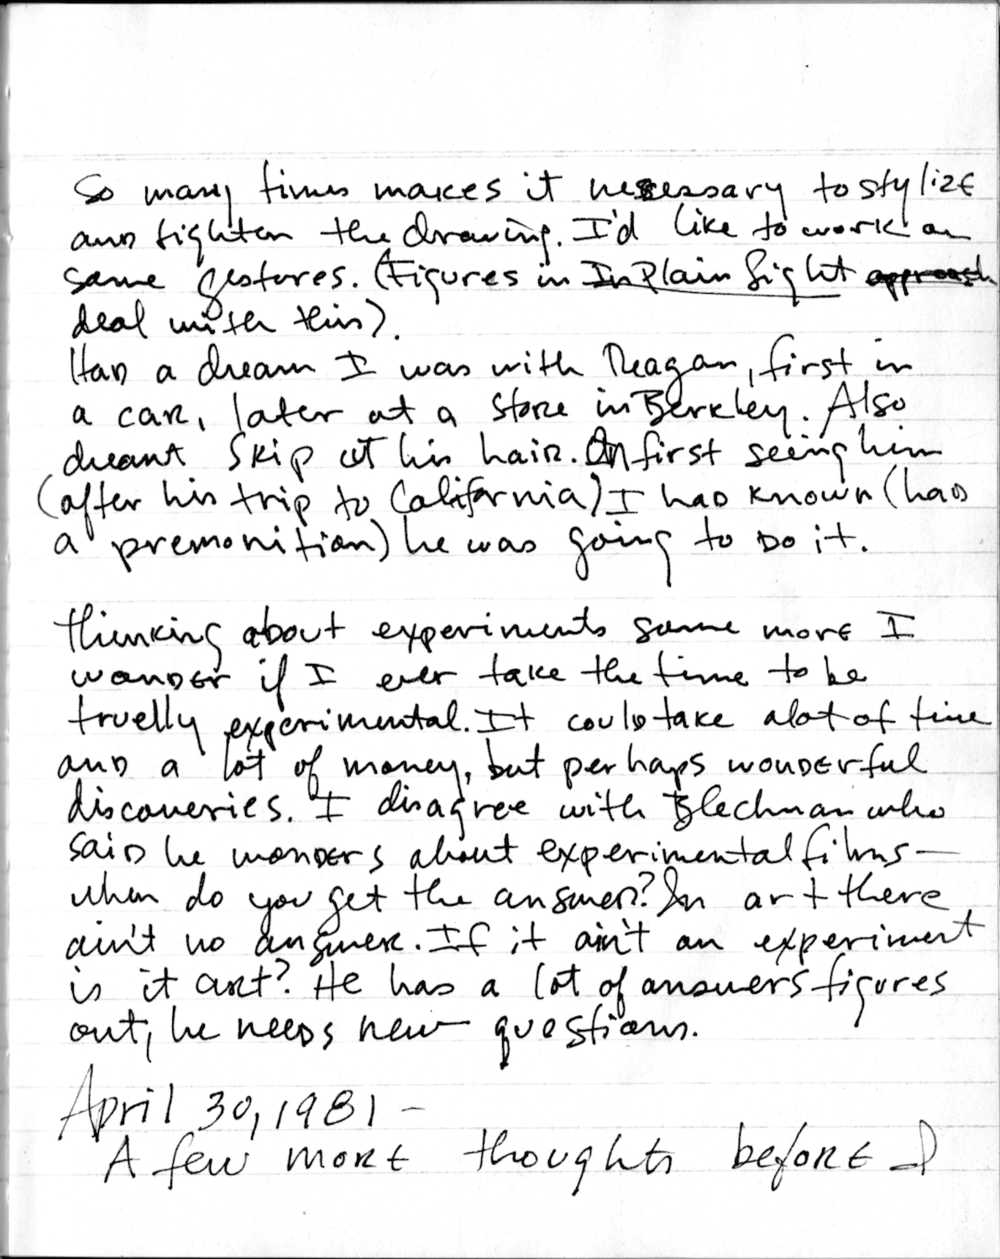 So many times makes it necessary to stylize
and tighten the drawing. I'd like to work on
some gestures. (Figures in In Plain Sight approach
deal with this).
Had a dream I was with Reagan, first in
a car, later at a store in Berkley. Also
dreamt Skip cut his hair. On first seeing him
(after his trip to California) I had known (had
a premonition) he was going to do it.
Thinking about experiments some more I
wonder if I ever take the time to be
truelly experimental. It could take alot of time
and a lot of money, but perhaps wonderful
discoveries. I disagree with Blechman who
said he wonders about experimental films—
when do you get the answer? In art there
ain't no answer. If it ain't an experiment
is it art? He has a lot of answers figures
out, he needs new questions.
April 30, 1981 –
A few more thoughts before I